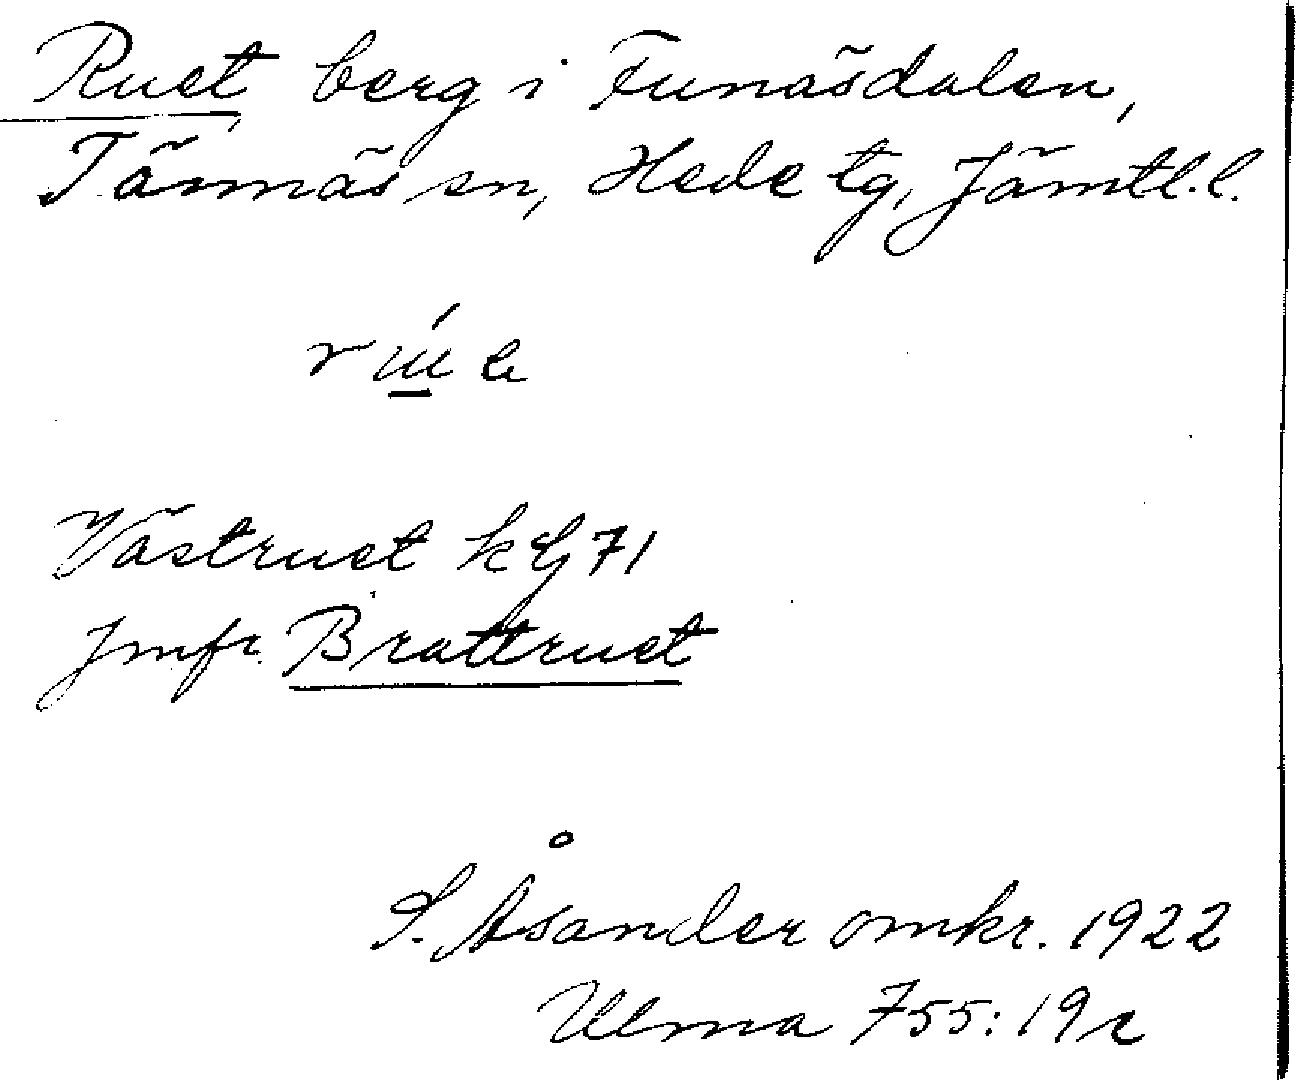 Ruet, berg i Funäsdalen,
Tännäs sn, Hede tg, Jämtl.l.
Västruet kG71
Jmfr. Brattruet
S. Åsander omkr. 1922
Ulma 755:19c